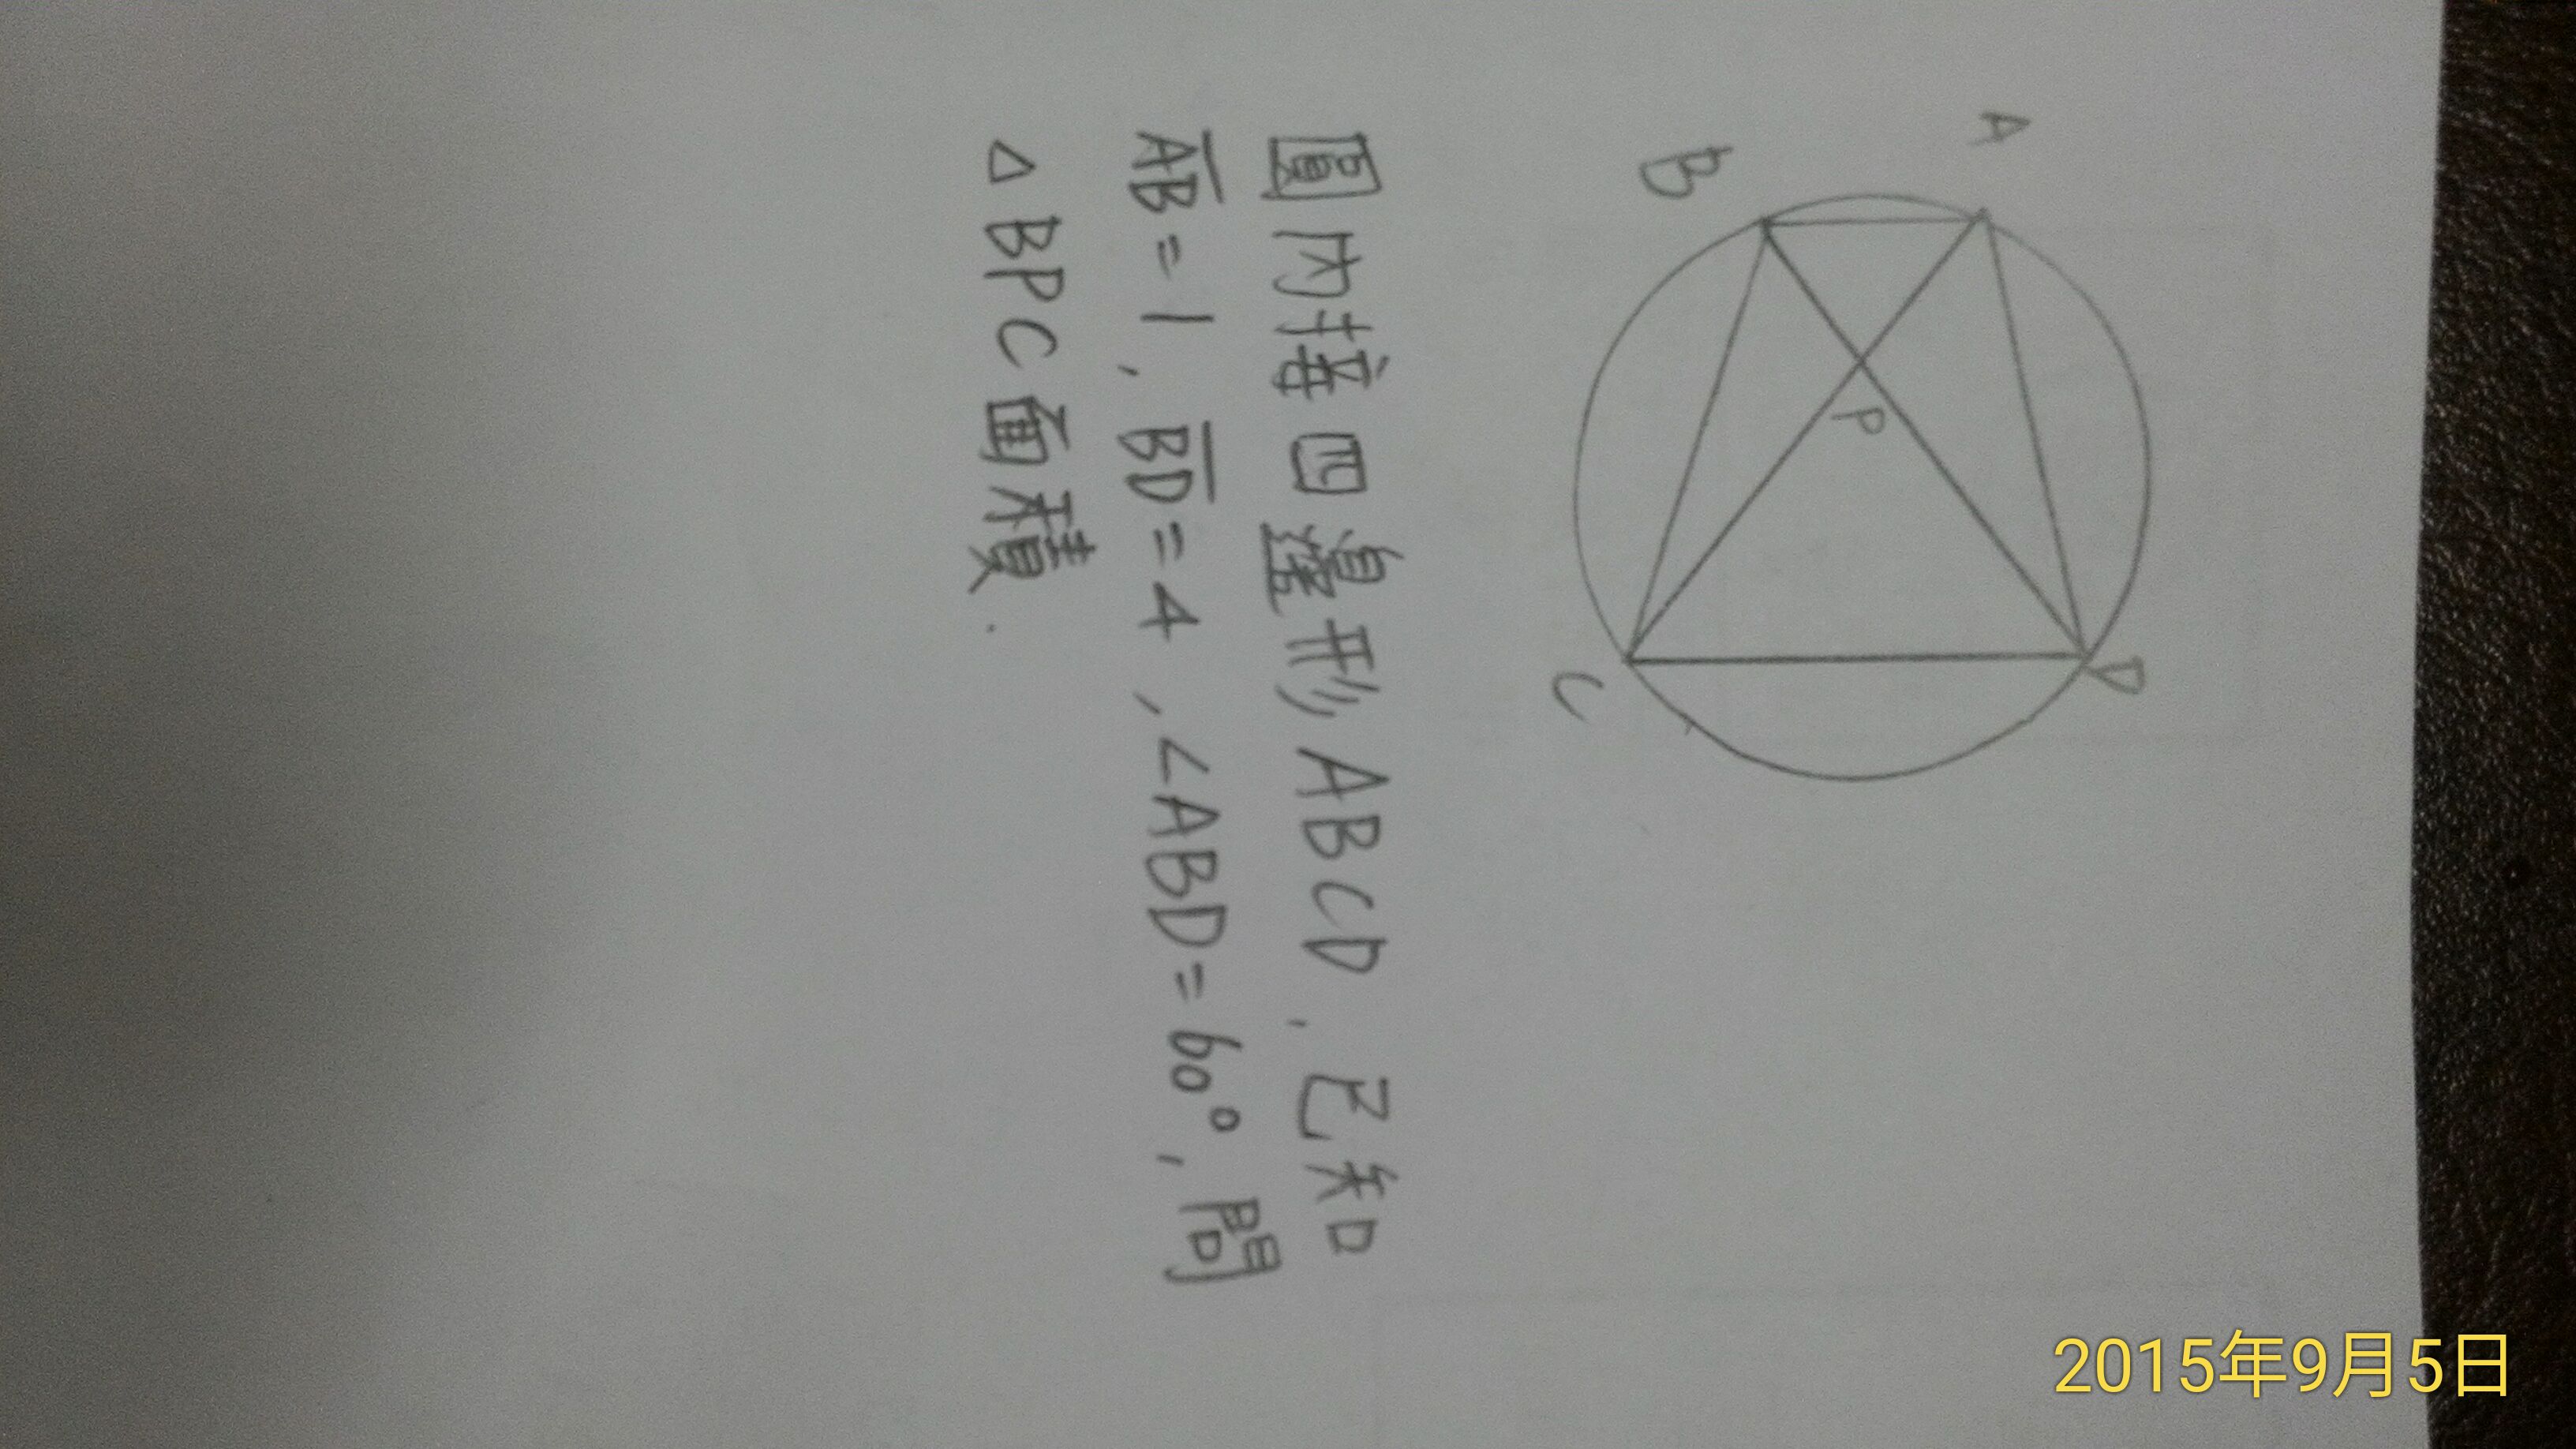 A
B
P
D
C
圓內接四邊形ABCD,已知
AB=1,BD=4,∠ABD=60°,問
△BPC面積.
2015年9月5日